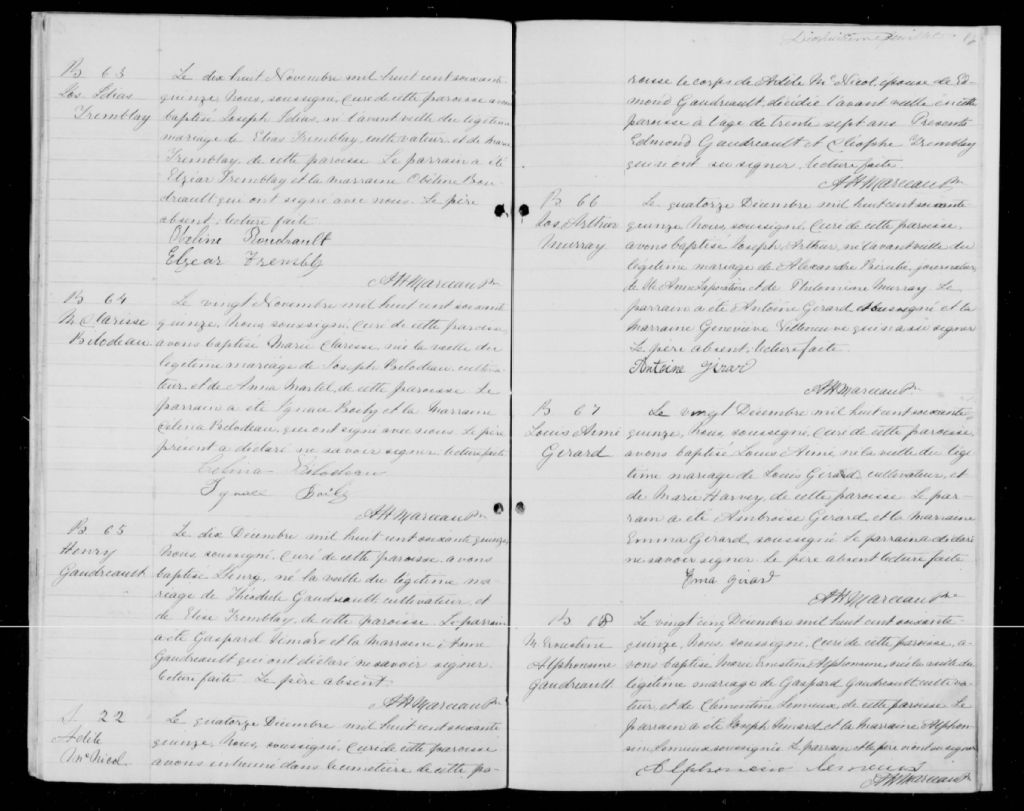 B 63
Jos. Elias
Tremblay
Le dix huit Novembre mil huit cent soixante
quinze, Nous, soussigné, Curé de cette paroisse avons
baptisé Joseph Elias, né l'avant veille du légitime
mariage de Elias Tremblay, cultivateur et de Marie
Tremblay, de cette paroisse Le parrain a été
Elzéar Tremblay et la marraine Obéline Bou-
dreault qui ont signé avec nous. Le père
absent, lecture faite
Obéline Boudrault
Elzear Tremblay
AH Marceau Ptre
B 64
M. Clarisse
Bilodeau
Le vingt Novembre mil huit cent soixante
quinze, Nous, soussigné, Curé de cette paroisse
avons baptisé Marie Claresse, née la veille du
légitime mariage de Joseph Bilodeau, cultiva-
teur, et de Anna Martel, de cette paroisse Le
parrain a été Ignace Boily et la Marraine
Celina Bilodeau, qui ont signé avec nous. Le père
présent a déclaré ne savoir signer, lecture faite
Celina Bilodeau
Ignace Boily
AH Marceau Ptre
B 65
Henry
Gaudreault
Le dix Décembre mil huit cent soixante quinze,
Nous, soussigné, Curé de cette paroisse, avons
baptisé Henry, né la veille du légitime ma-
riage de Théodule Gaudreault cultivateur, et
de Elise Tremblay, de cette paroisse. Le parrain
a été Gaspard Simard et la marraine Anne
Gaudreault qui ont déclaré ne savoir signer.
lecture faite. Le père absent.
AH Marceau Ptre
S. 22
Adèle
McNicol
Le quatorze Décembre mil huit cent soixante
quinze, Nous, soussigné, Curé de cette paroisse
avons inhumé dans le cimetière de cette pa-
Dixhuitième feuillet
roisse le corps de Adèle McNicol, épouse de Ed-
mond Gaudreault, décédée l'avant veille en cette
paroisse à l'âge de trente sept ans Présents
Edmond Gaudreault et Cléophe Tremblay
qui n'ont su signer, lecture faite.
AH Marceau Ptre
B 66
Jos. Arthur
Murray
Le quatorze Décembre mil huit cent soixante
quinze, Nous, soussigné, Curé de cette paroisse,
avons baptisé Joseph, Arthur, né l'avant veille du
légitime mariage de Alexandre Bérubé, journalier,
de Ste Anne Lapocatière et de Philomène Murray. Le
parrain a été Antoine Gerard soussigné et la
Marraine Geneviève Villeneuve qui n'a su signer
Le père absent, lecture faite.
Antoine Girard
AH Marceau Ptre
B 67
Louis Aimé
Gerard
Le vingt Décembre mil huit cent soixante
quinze, Nous, soussigné, Curé de cette paroisse,
avons baptisé Louis Aimé né la veille du légi-
time mariage de Louis Gerard, cultivateur, et
de Marie Harvey, de cette paroisse Le par-
rain a été Ambroise Gerard, et la marraine
Emma Gerard, soussigné. Le parrain a déclaré
ne savoir signer. Le père absent lecture faite
Ema Girard
AH Marceau Ptre
B 68
M. Ernestine
Alphonsine
Gaudreault
Le vingt cinq Décembre mil huit cent soixante
quinze, Nous, soussigné, Curé de cette paroisse, a-
vons baptisé Marie Ernestine Alphonsine, née la veille du
légitime mariage de Gaspard Gaudreault, cultiva-
teur, et de Clémentine Lemieux de cette paroisse Le
parrain a été Joseph Simard et la marraine Alphon-
sine Lemieux soussignée Le parrain et le père n'ont su signer
Alphonsine Lemieux
AH Marceau Ptre